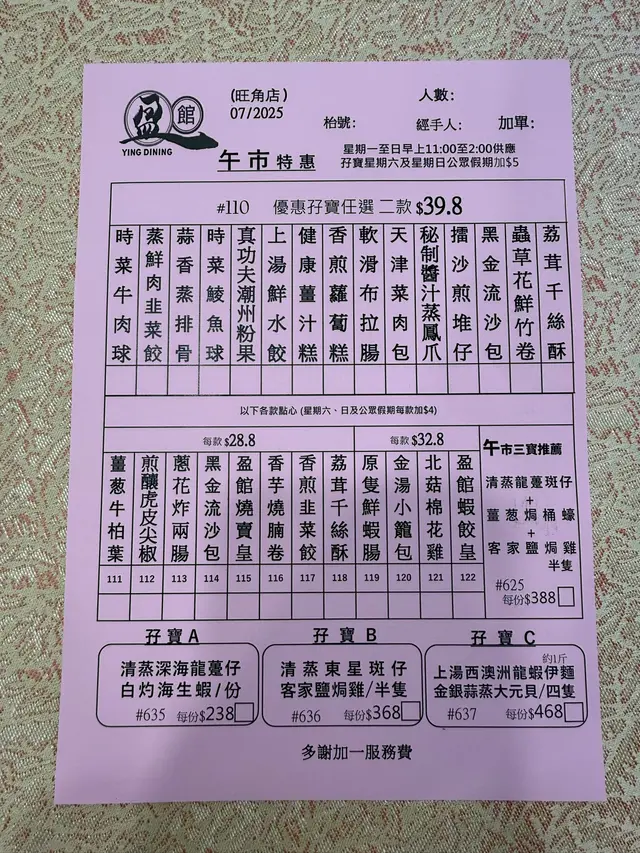 盈館
YING DINING
(旺角店)
07/2025
人數:
枱號:
經手人:
加單:
午市特惠
星期一至日早上11:00至2:00供應
孖寶星期六及星期日公眾假期加$5
#110 優惠孖寶任選 二款 $39.8
時菜牛肉球
蒸鮮肉韭菜餃
蒜香蒸排骨
時菜鯪魚球
真功夫潮州粉果
上湯鮮水餃
健康薑汁糕
香煎蘿蔔糕
軟滑布拉腸
天津菜肉包
秘制醬汁蒸鳳爪
擂沙煎堆仔
黑金流沙包
蟲草花鮮竹卷
荔茸千絲酥
以下各款點心 (星期六、日及公眾假期每款加$4)
每款 $28.8
每款 $32.8
薑葱牛柏葉 111
煎釀虎皮尖椒 112
蔥花炸兩腸 113
黑金流沙包 114
盈館燒賣皇 115
香芋燒腩卷 116
香煎韭菜餃 117
荔茸千絲酥 118
原隻鮮蝦腸 119
金湯小籠包 120
北菇棉花雞 121
盈館蝦餃皇 122
午市三寶推薦
清蒸龍躉斑仔
+
薑葱焗桶蠔
+
客家鹽焗雞
半隻
#625
每份$388
孖寶A
清蒸深海龍躉仔
白灼海生蝦/份
#635 每份$238
孖寶B
清蒸東星斑仔
客家鹽焗雞/半隻
#636 每份$368
孖寶C
約1斤
上湯西澳洲龍蝦伊麵
金銀蒜蒸大元貝/四隻
#637 每份$468
多謝加一服務費